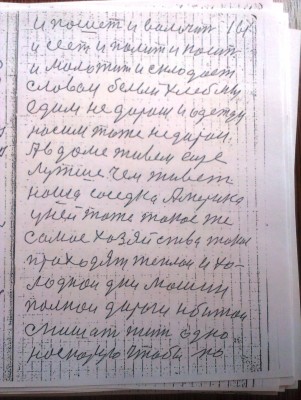 и пашет и валочит 14
и сеет и полит и косит
и молотит и складает
словом белый хлебему
едим не даром и одежду
носим тоже недаром.
А в доме живем еще
лутше чем живет
наша соседка Америка
у ней тоже такое же
самое хозяйства также
праходят теплои и хо-
лоднои дни машин
полнои дороги
спишат жит одно
чтоби по